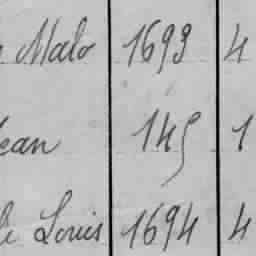 Malo 1693 4
Jean 145 1
de Louis 1694 4